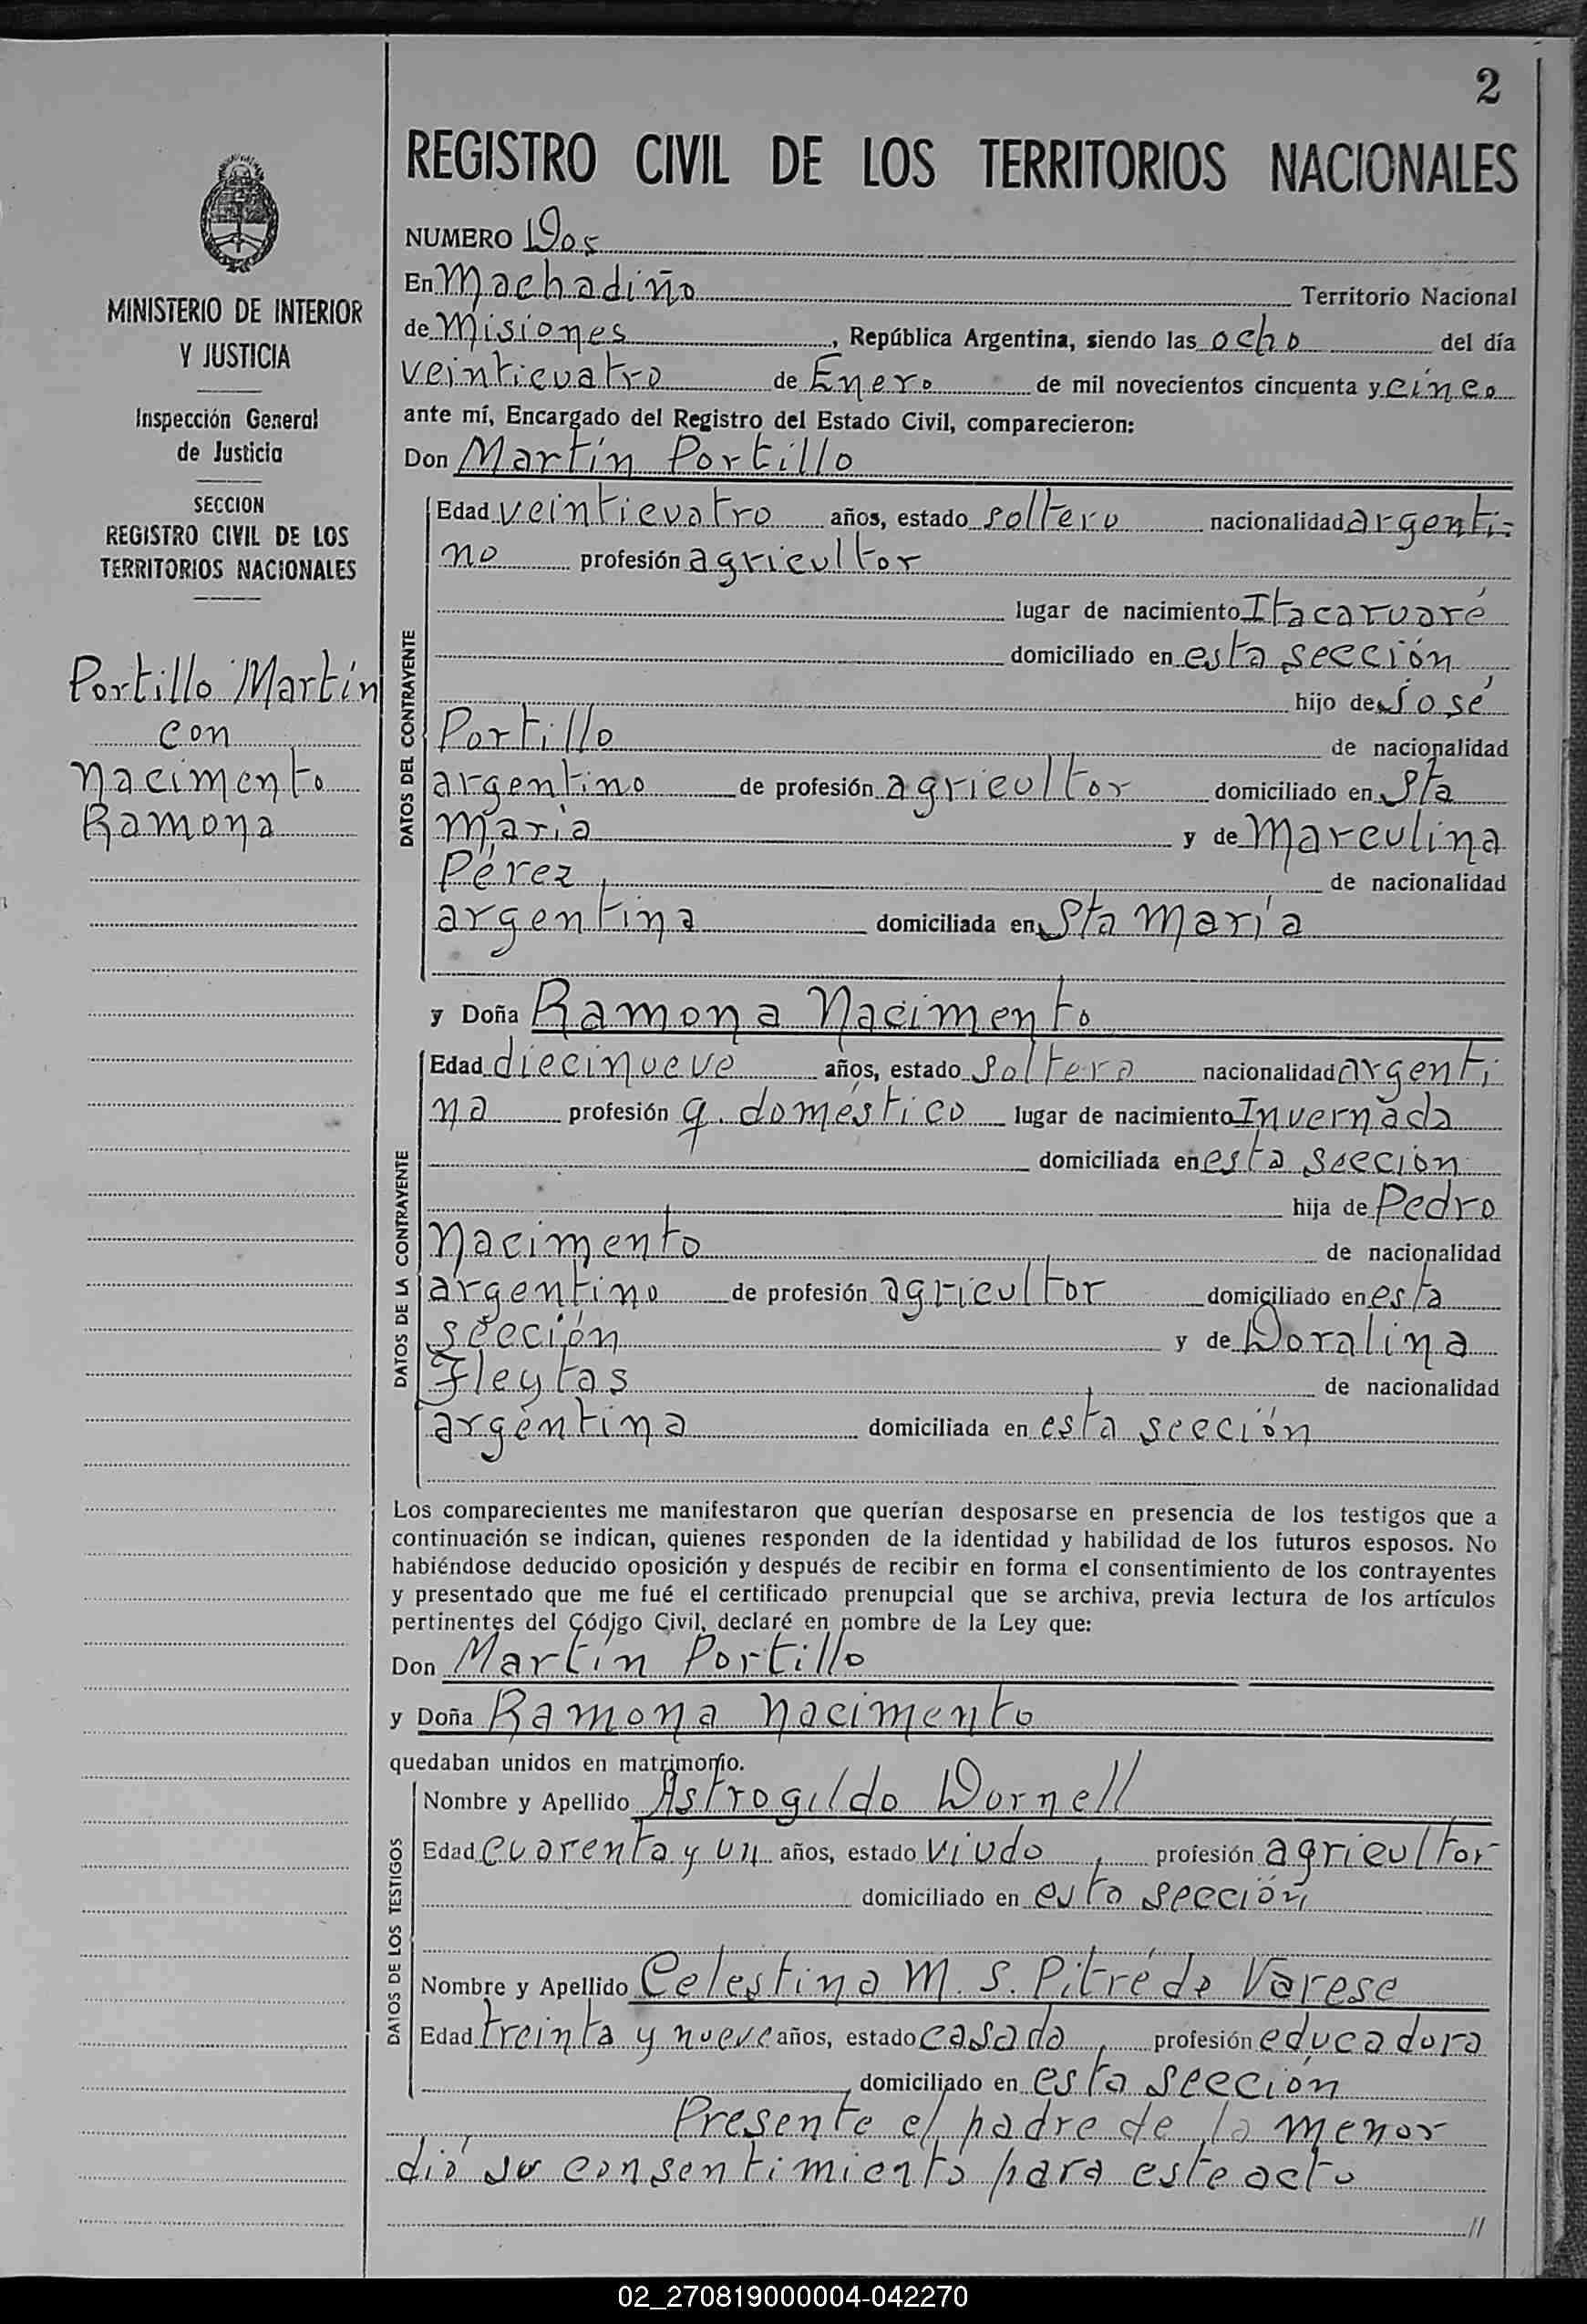 2
REGISTRO CIVIL DE LOS TERRITORIOS NACIONALES
MINISTERIO DE INTERIOR
Y JUSTICIA
Inspección General
de Justicia
SECCION
REGISTRO CIVIL DE LOS
TERRITORIOS NACIONALES
Portillo Martín
con
Nacimento
Ramona
NUMERO Dos
En Machadiño Territorio Nacional
de Misiones, República Argentina, siendo las ocho del día
veinticuatro de Enero de mil novecientos cincuenta y cinco
ante mí, Encargado del Registro del Estado Civil, comparecieron:
Don Martín Portillo
DATOS DEL CONTRAYENTE
Edad veinticuatro años, estado soltero nacionalidad argenti-
no profesión agricultor
lugar de nacimiento Itacaruaré
domiciliado en esta sección
hijo de José
Portillo de nacionalidad
argentino de profesión agricultor domiciliado en Sta
María y de Marculina
Pérez de nacionalidad
argentina domiciliada en Sta María
y Doña Ramona Nacimento
DATOS DE LA CONTRAYENTE
Edad diecinueve años, estado soltera nacionalidad argenti
na profesión q. doméstico lugar de nacimiento Invernada
domiciliada en esta sección
hija de Pedro
Nacimento de nacionalidad
argentino de profesión agricultor domiciliado en esta
sección y de Doralina
Fleytas de nacionalidad
argentina domiciliada en esta sección
Los comparecientes me manifestaron que querían desposarse en presencia de los testigos que a
continuación se indican, quienes responden de la identidad y habilidad de los futuros esposos. No
habiéndose deducido oposición y después de recibir en forma el consentimiento de los contrayentes
y presentado que me fué el certificado prenupcial que se archiva, previa lectura de los artículos
pertinentes del Código Civil, declaré en nombre de la Ley que:
Don Martín Portillo
y Doña Ramona Nacimento
quedaban unidos en matrimonio.
DATOS DE LOS TESTIGOS
Nombre y Apellido Astrogildo Dornell
Edad cuarenta y un años, estado viudo profesión agricultor
domiciliado en esta sección
Nombre y Apellido Celestina M. S. Pitré de Varese
Edad treinta y nueve años, estado casada profesión educadora
domiciliado en esta sección
Presente el padre de la menor
dió su consentimiento para este acto
//
02_270819000004-042270